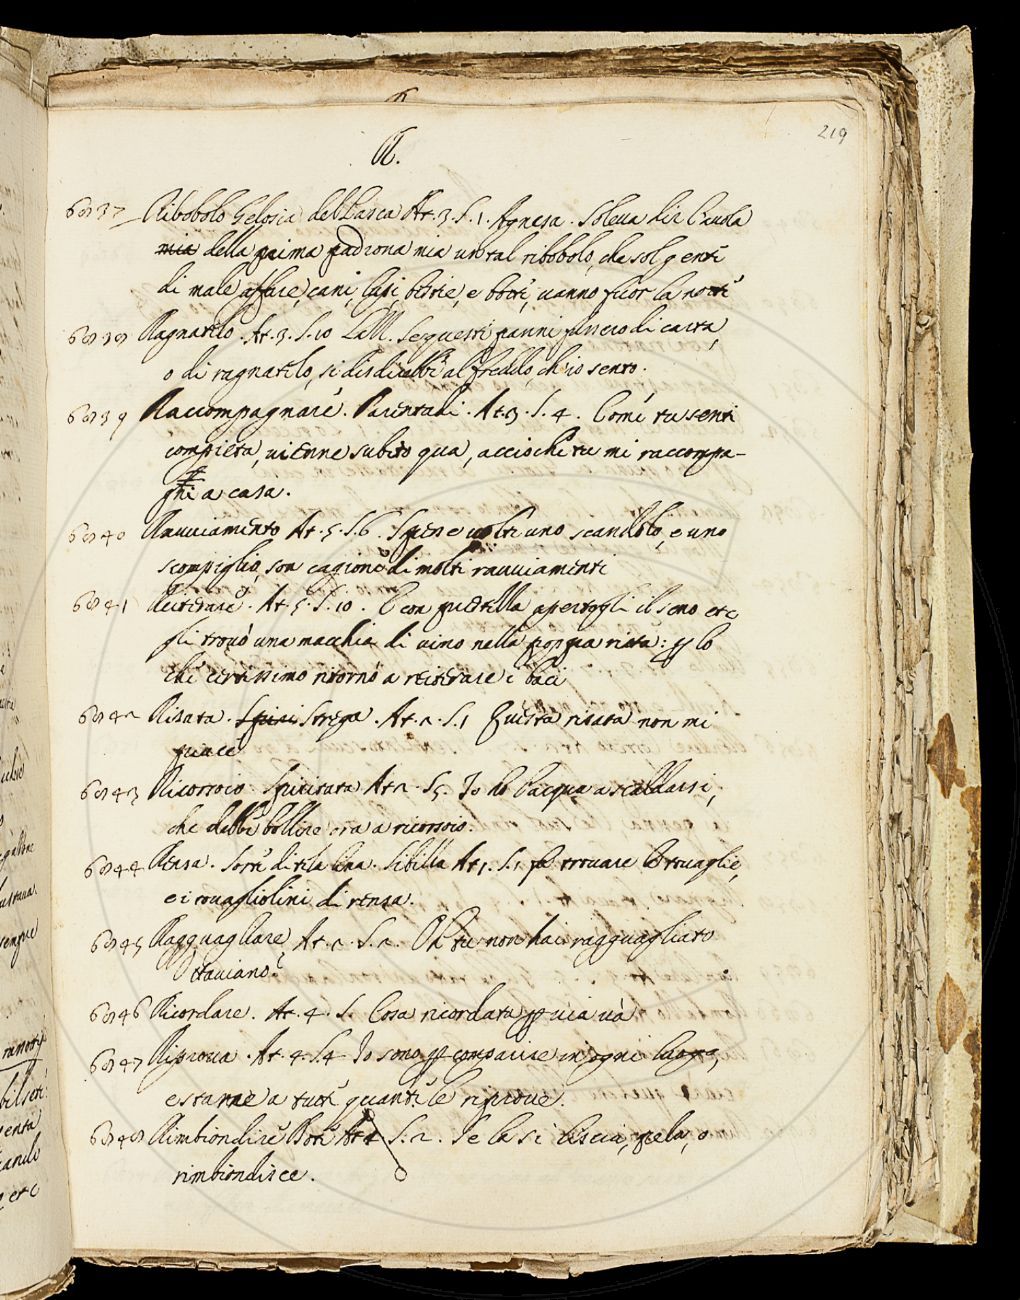 219
R.
6837 Ribobolo Gelosia del Lasca At. 3. S. 1. Agnesa. Soleva dir l'avola
mia della prima padrona mia un tal ribobolo, che sol genti
di male affare, cani, lupi, bestie, e botti, vanno fuor la notte
6838 Ragnatelo. At. 3. S. 10 Se questi panni fussero di carta,
o di ragnatelo, si disdirebbe al freddo, ch'io sento.
6839 Raccompagnare. Parentadi. At. 3. S. 4. Come tu senti
compieta, vienne subito qua, acciochè tu mi raccompa-
gni a casa.
6840 Ravviamento At. 5. S. 6. Spesse volte uno scandolo, e uno
scompiglio, son cagione di molti ravviamenti
6841 Reiterare. At. 5. S. 10. E con quella apertogli il seno etc
gli trovò una macchia di vino nella poppa ritta: p lo
che certissimo ritornò a reiterare i baci
6842 Risata. Spiri Strega. At. 2. S. 1 Questa risata non mi
piace
6843 Ricorsoio. Spiritata At 2. S 5. Io ho l'acqua a scaldarsi,
che debbe bollire ora a ricorsoio.
6844 Rensa. Sorte di tela lina. Sibilla At 1. S. 1 fe trovare le tovaglie,
e i tovagliolini di rensa.
6845 Ragguagliare At. 2. S. 2. Oh tu non hai ragguagliato
Ottaviano?
6846 Ricordare. At. 4. S. Cosa ricordata p via và
6847 Riprova. At. 4. S. 4 Io sono p comparire in ogni luogo,
e starne a tutte quante le riprove.
6848 Rimbiondire S. 2. Se la si liscia, pela, o
rimbiondisce.